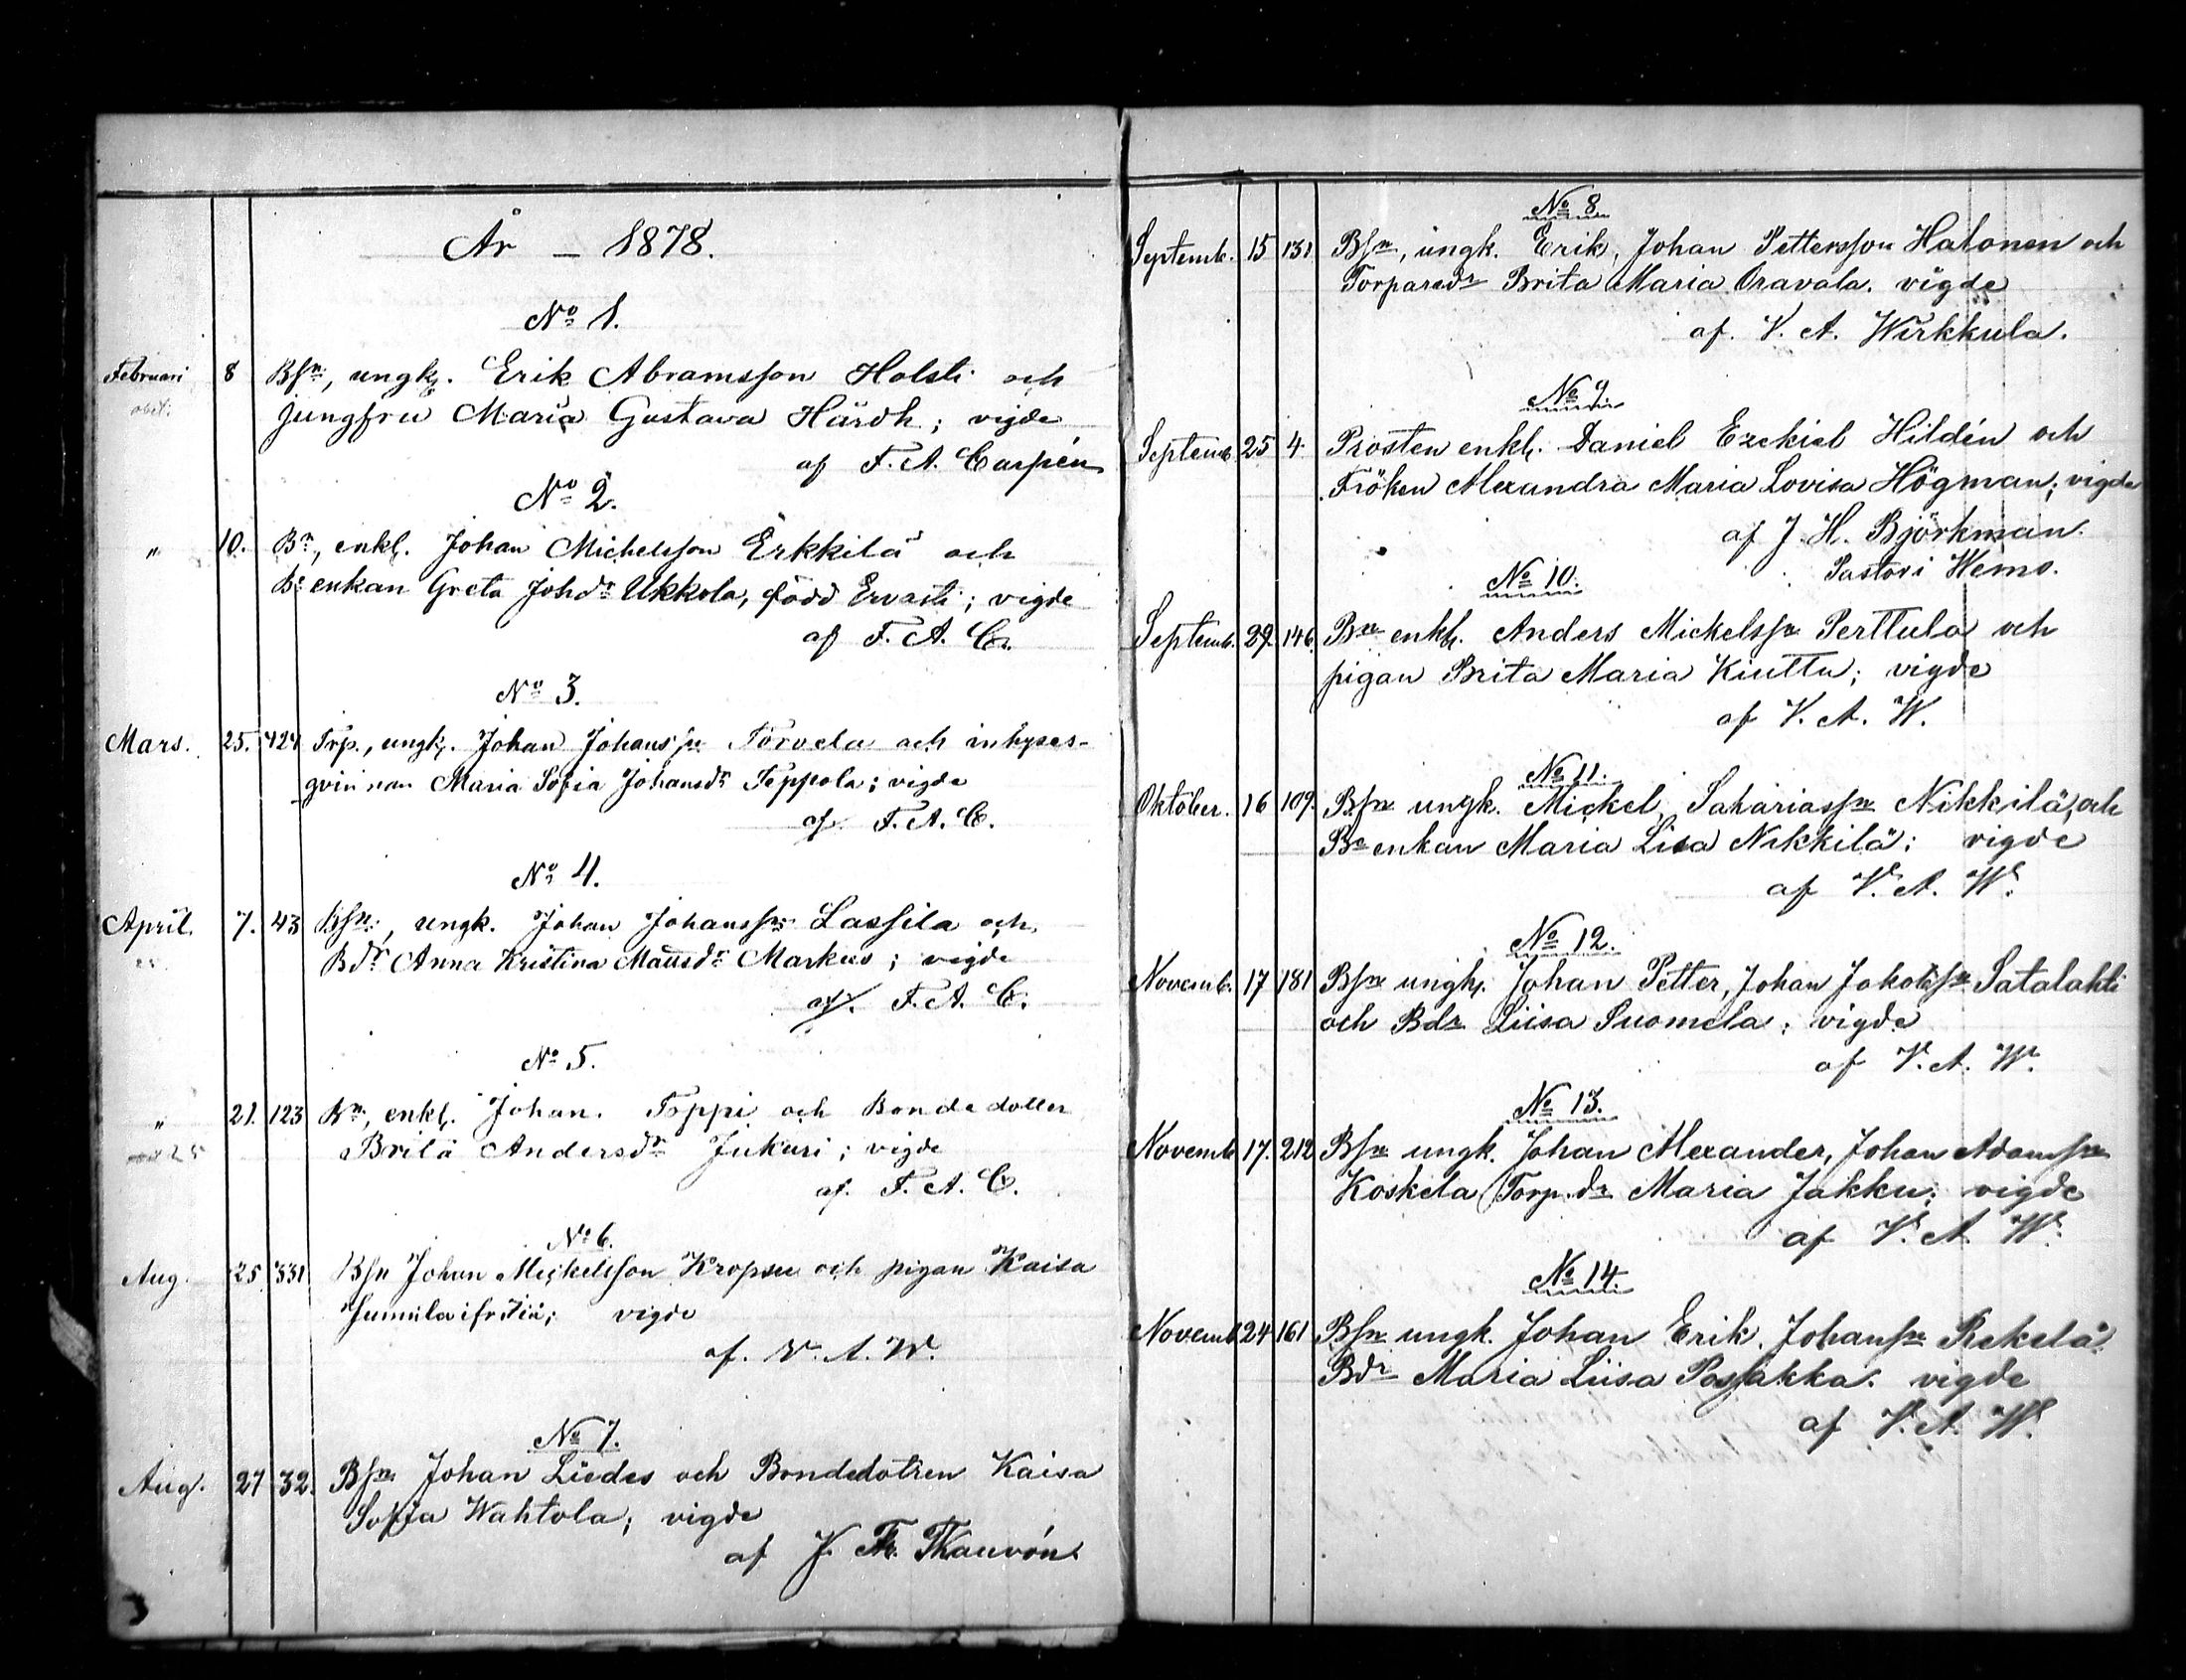 År – 1878.
No 1.
Februari 8 Bsn, ungk. Erik Abramsson Holsti och
jungfru Maria Gustava Hårdh; vigde
af F. A. Carpén
No 2.
" 10. Bn, enkl. Johan Michelsson Erkkilä och
be enkan Greta Johdr Ukkola, född Ervasti; vigde
af F. A. C.
No 3.
Mars. 25. 424 Trp., ungk. Johan Johanssn Torvela och inhyses-
qvinnan Maria Sofia Johansdr Teppola; vigde
af F. A. C.
No 4.
April. 7. 43 Bsn, ungk. Johan Johanssn Lassila och
25.
Bdr Anna Kristina Mattsdr Markus; vigde
af. F. A. C.
No 5.
" 21. 123 Bn, enkl. Johan Toppi och Bondedotter
25 Brita Andersdr Jukuri; vigde
af. F. A. C.
No 6.
Aug. 25 331 Bsn Johan Mickelsson Kropsu och pigan Kaisa
vigde
af. V. A. W.
No 7.
Aug. 27 32. Bsn Johan Liedes och Bondedotren Kaisa
Sofia Wahtola; vigde
af J. Th.
No 8.
Septemb. 15 131 Bsn, ungk. Erik, Johan Pettersson Halonen och
Torparedr Brita Maria Oravala. vigde
af. V. A. Wirkkula.
No 9.
Septemb. 25 4 Prosten enkl. Daniel Ezekiel Hildén och
Fröken Alexandra Maria Lovisa Högman; vigde
af J. H. Björkman.
Pastor i Kemo.
No 10.
Septemb. 29. 146 Bn enkl. Anders Mickelssn Perttula och
pigan Brita Maria Kiuttu; vigde
af V. A. W.
No 11.
Oktober. 16 109. Bsn ungk. Mickel, Sahariassn Nikkilä, och
Be enkan Maria Lisa Nikkilä; vigde
af V. A. W.
No 12.
Novemb. 17 181 Bsn ungk. Johan Petter, Johan Jakobssn Satalahti
och Bdr Liisa Suomela; vigde
af V. A. W.
No 13.
Novemb 17. 212 Bsn ungk. Johan Alexander, Johan Adamssn
Koskela Torp.dr Maria Jakku; vigde
af V. A. W.
No 14.
Novemb 24 161 Bsn ungk. Johan Erik, Johanssn Rekelä
Bdr Maria Liisa Posjakka. vigde
af V. A. W.